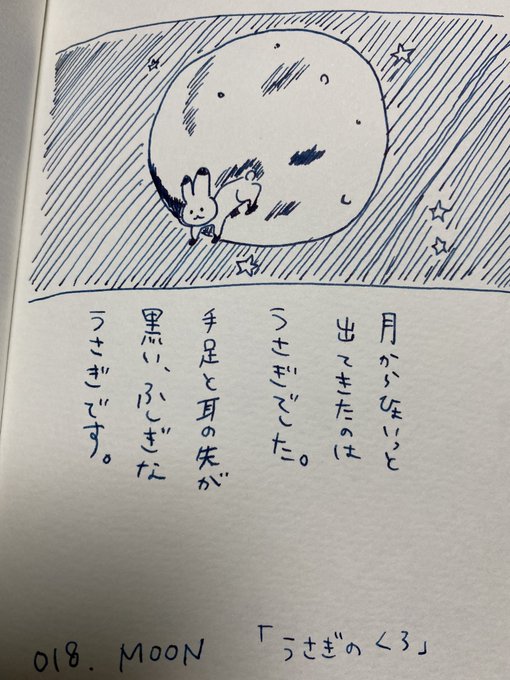 月からひょいっと
出てきたのは
うさぎでした。
手足と耳の先が
黒い、ふしぎな
うさぎです。
018. MOON 「うさぎのくろ」